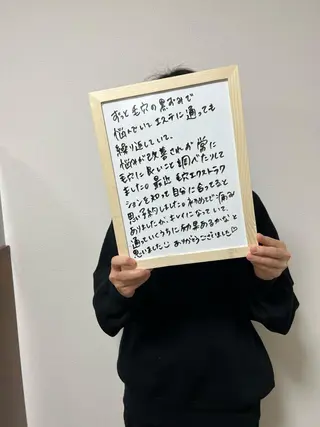 ずっと毛穴の黒ずみで
悩んでいて エステに通っても
繰り返していて、
悩みが改善されず 常に
毛穴に良いこと調べたりして
ました。最近 毛穴エクストラク
ションを知って自分に合ってると
思い予約しました。初めてで痛み
ありましたが、キレイになっていて、
通っていくうちに効果あるかなと
思いました☺ ありがとうございました♡